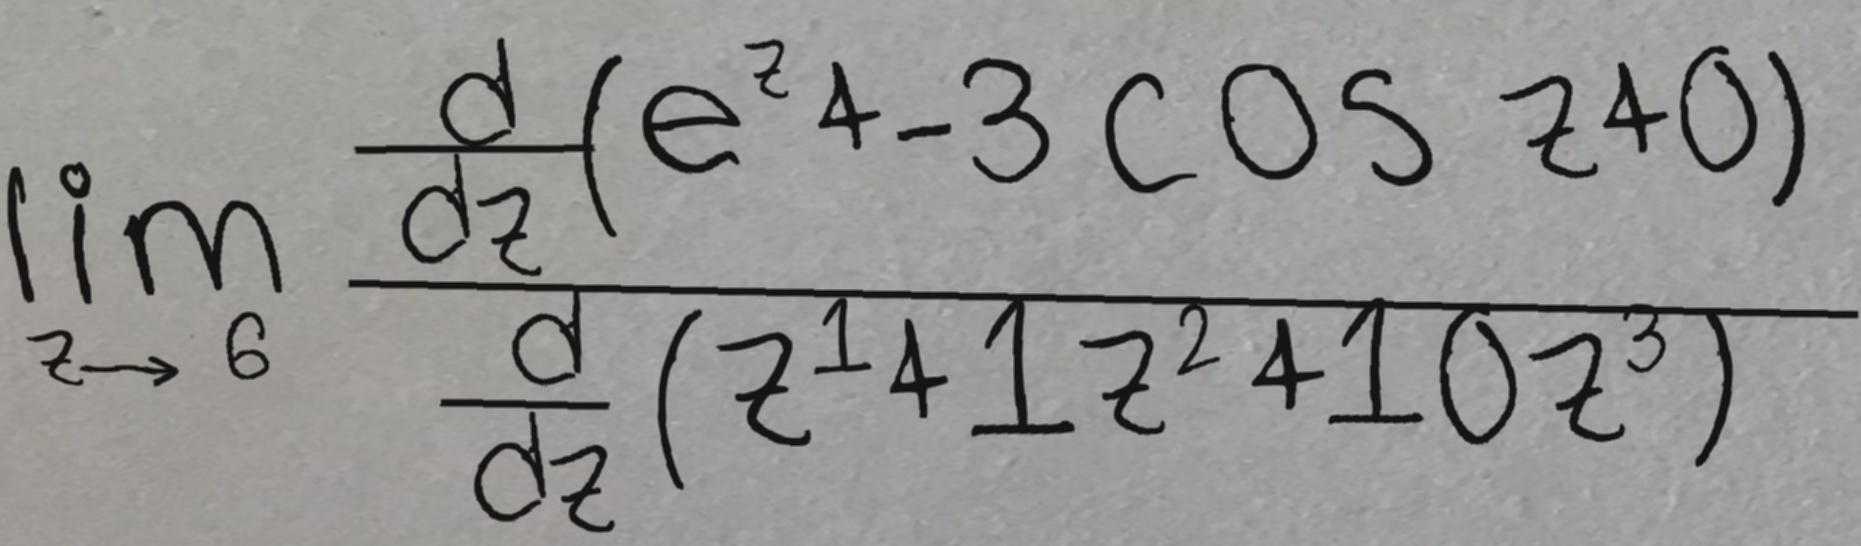 \lim_{z \to 6} \frac{\frac{d}{dz}(e^{z}+-3\cos z+0)}{\frac{d}{dz}(z^{1}+1z^{2}+10z^{3})}